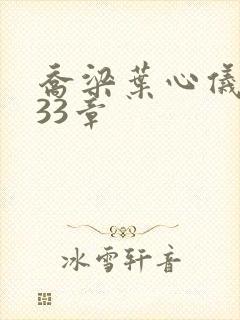 乔梁葉心儀
33章
冰雪轩音